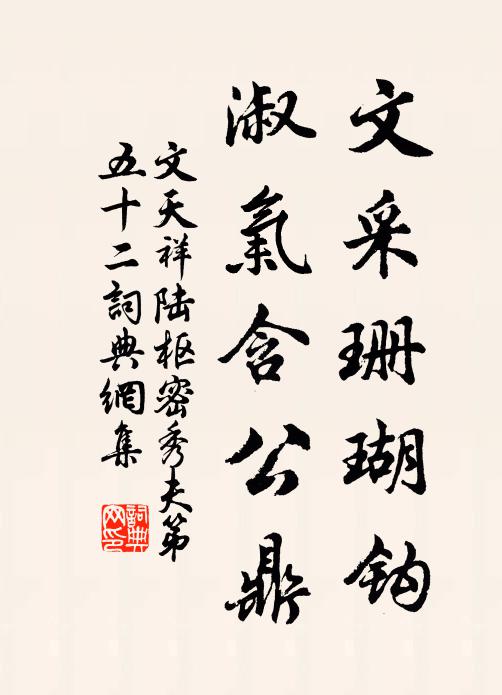 文采珊瑚鈎
淑氣含公鼎
文天祥陆枢密秀夫第
五十二詞典網集
詞典網印